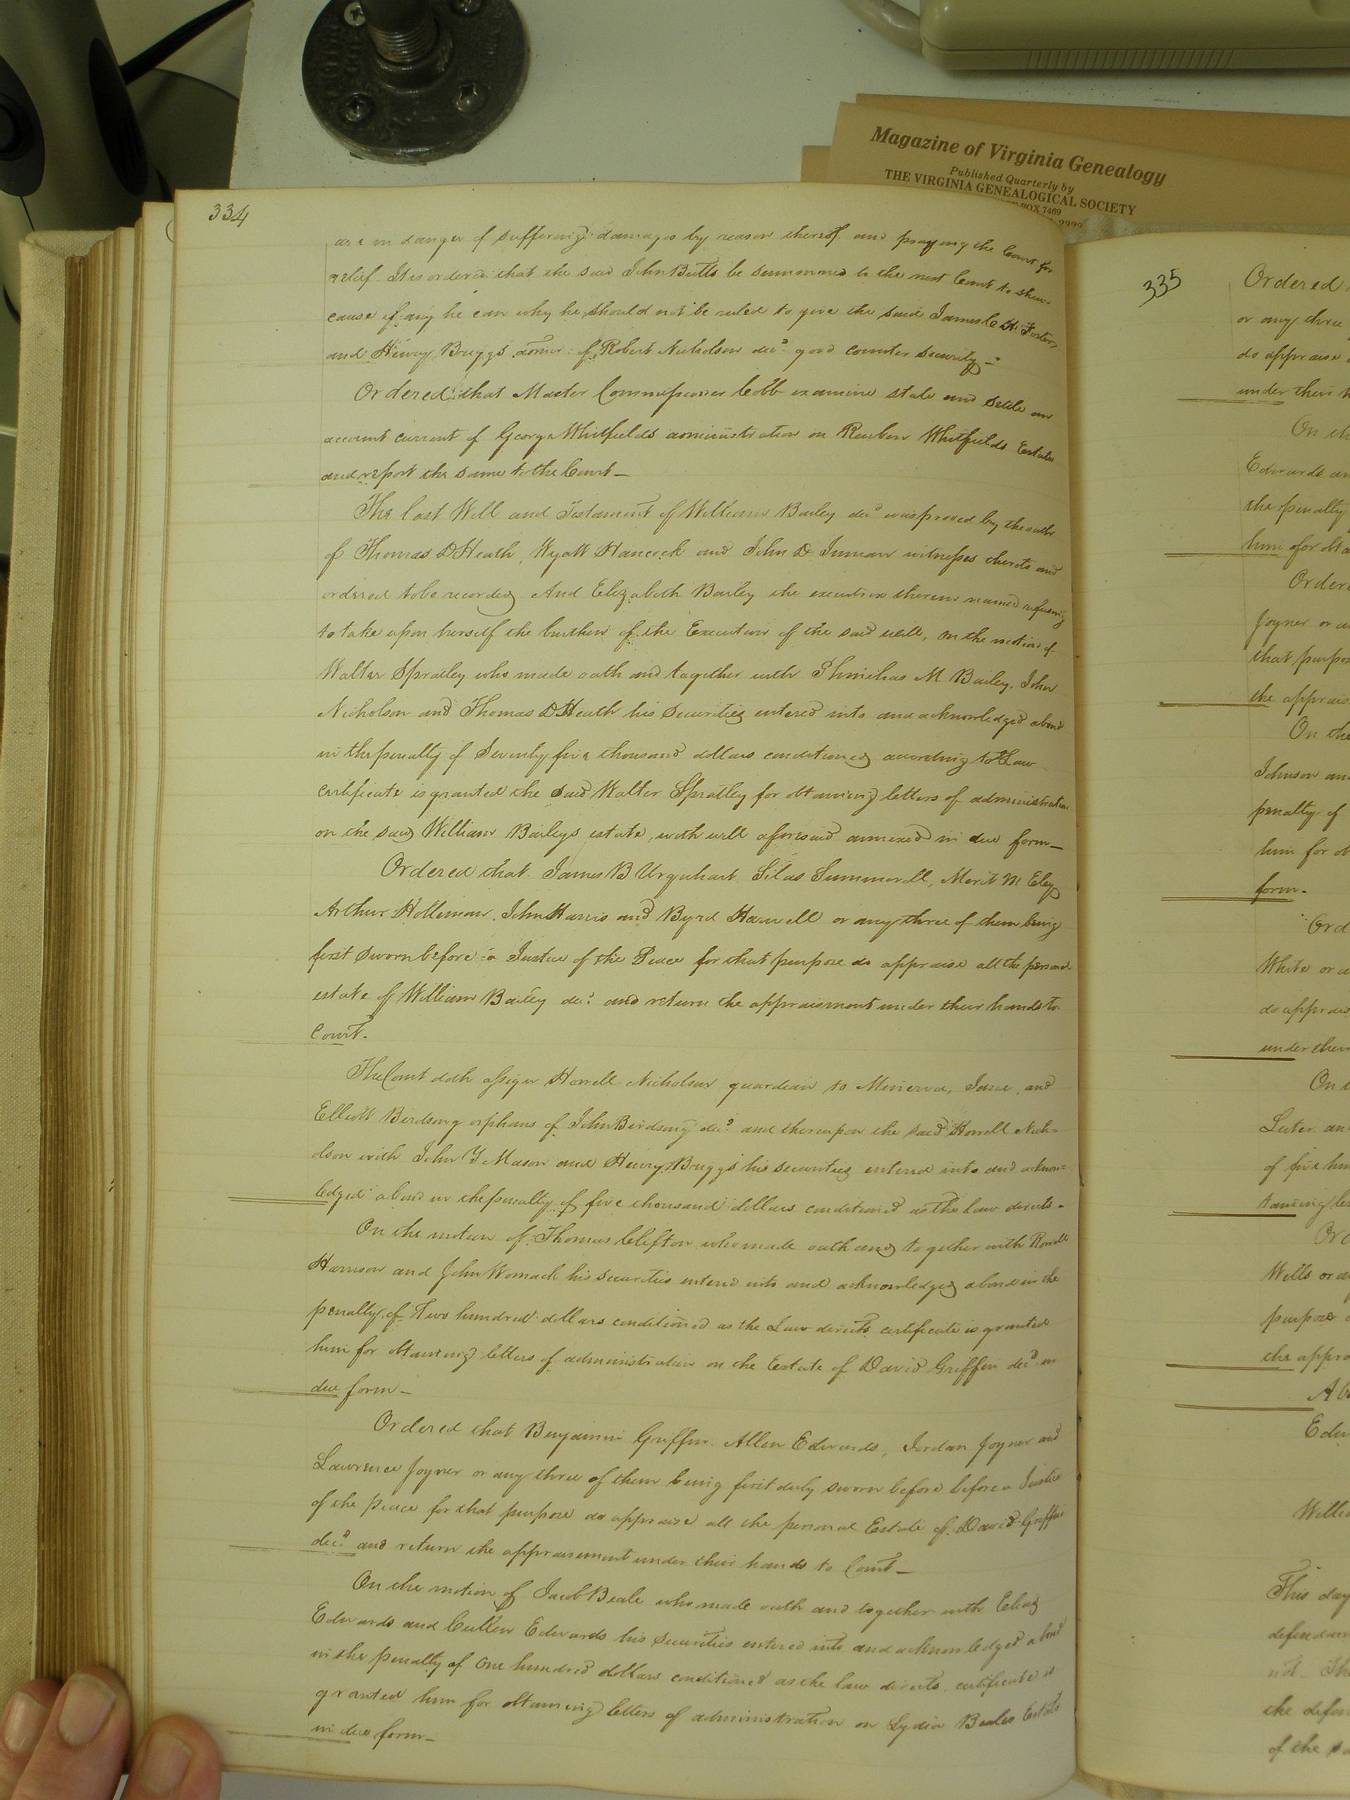 Magazine of Virginia Genealogy
Published Quarterly by
THE VIRGINIA GENEALOGICAL SOCIETY
BOX 7469
334
are in danger of suffering damages by reason thereof and praying the Court for
relief. It is ordered that the said John Butts be summoned to the next Court to shew
cause if any he can why he should not be ruled to give the said James C. H. Foster
and Henry Briggs admr. of Robert Nicholson decd. good counter security –
Ordered that Master Commissioner Cobb examine state and settle an
account current of George Whitfields administration on Reuben Whitfields Estate
and report the same to the Court –
The last Will and Testament of William Bailey decd was proved by the oaths
of Thomas D Heath, Wyatt Hancock and John D Inman witnesses thereto and
ordered to be recorded And Elizabeth Bailey the executrix therein named refusing
to take upon herself the burthen of the Execution of the said will, on the motion of
Walter Spratley who made oath and together with Phinehas M Bailey, John
Nicholson and Thomas D Heath his Securities entered into and acknowledged a bond
in the penalty of Seventy five thousand dollars conditioned according to Law
certificate is granted the said Walter Spratley for obtaining letters of administration
on the said William Baileys estate, with will aforesaid annexed in due form –
Ordered that James B Urquhart, Silas Summerell, Merit M Eley
Arthur Holleman, John Harris and Byrd Harwell or any three of them being
first sworn before a Justice of the Peace for that purpose do appraise all the personal
estate of William Bailey decd. and return the appraisment under their hands to
Court.
The Court doth assign Howell Nicholson guardian to Minerva, Jane, and
Elliott Birdsong orphans of John Birdsong decd and thereupon the said Howell Nich-
olson with John Y Mason and Henry Briggs his securities entered into and acknow-
ledged a bond in the penalty of five thousand dollars conditioned as the law directs –
On the motion of Thomas Clifton who made oath and together with
Harrison and John Womack his Securities entered into and acknowledged a bond in the
penalty of Two hundred dollars conditioned as the Law directs certificate is granted
him for obtaining letters of administration on the Estate of David Griffin decd in
due form –
Ordered that Benjamin Griffin, Allen Edwards, Jordan Joyner and
Lawrence Joyner or any three of them being first duly sworn before before a Justice
of the peace for that purpose do appraise all the personal Estate of David Griffin
decd. and return the appraisement under their hands to Court –
On the motion of Jacob Beale who made oath and together with
Edwards and Cullen Edwards his Securities entered into and acknowledged a bond
in the penalty of One hundred dollars conditioned as the law directs, certificate is
granted him for obtaining letters of administration on Lydia Beales Estate
in due form –
335
Ordered
or any three
do appraise
under their
On th
Edwards an
the penalty
him for
Order
Joyner or
that purpo
the apprais
On the
Johnson an
penalty of
him for
form.
Ord
White or
do apprais
under their
On
Luter an
of five hun
taining
Ord
Wells or
purpose
the appra
Edw
Willia
This day
defendan
not. Th
the defen
of the